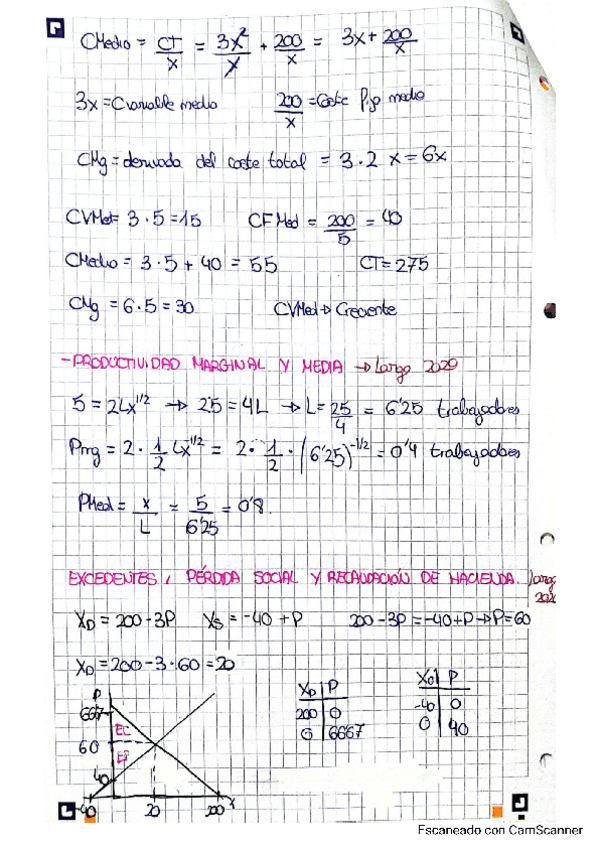 CMedio = CT/x = 3x²/x + 200/x = 3x + 200/x
3x = Cvariable medio 200/x = Coste fijo medio
CMg = derivada del coste total = 3·2 x = 6x
CVMed = 3·5 = 15 CFMed = 200/5 = 40
CMedio = 3·5 + 40 = 55 CT = 275
CMg = 6·5 = 30 CVMed → Creciente
- PRODUCTIVIDAD MARGINAL Y MEDIA → Larga 2020
5 = 2Lx^1/2 → 25 = 4L → L = 25/4 = 6'25 trabajadores
Pmg = 2 · 1/2 Lx^1/2 = 2 · 1/2 · (6'25)^-1/2 = 0'4 trabajadores
PMed = x/L = 5/6'25 = 0'8
EXCEDENTES, PÉRDIDA SOCIAL Y RECAUDACIÓN DE HACIENDA. Larga
XD = 200 - 3P XS = -40 + P 200 - 3P = -40 + P → P = 60
XD = 200 - 3·60 = 20
XD P
200 0
0 6667
XO P
-40 0
0 40
P
6667
EC
60
EP
40
-40 20 200 X
Escaneado con CamScanner